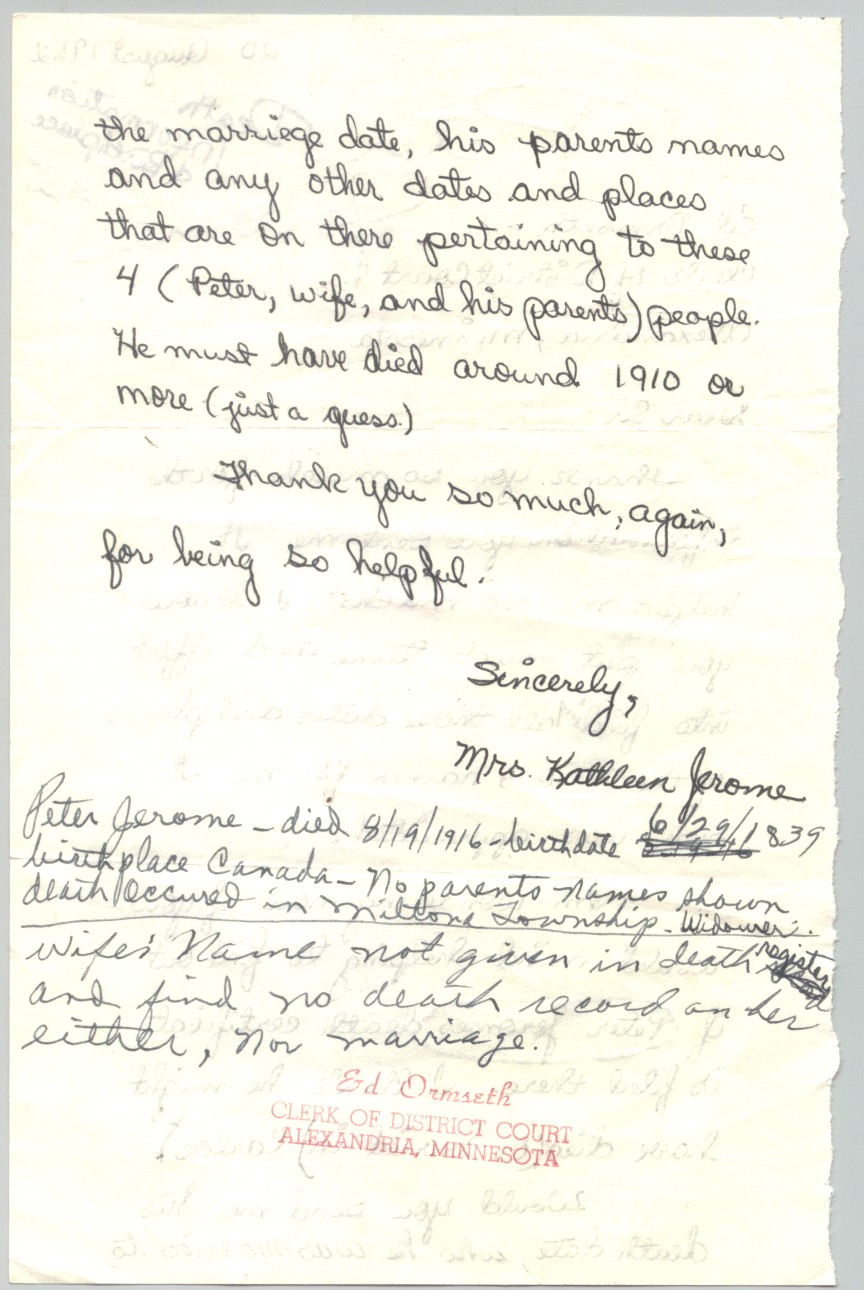 the marriege date, his parents names
and any other dates and places
that are on there pertaining to these
4 (Peter, wife, and his parents) people.
He must have died around 1910 or
more (just a guess.)
Thank you so much, again,
for being so helpful.
Sincerely,
Mrs. Kathleen Jerome
Peter Jerome – died 8/19/1916 – birthdate 6/29/1839
birthplace Canada – No parents names shown
death occured in Miltona Township – Widower.
Wife's Name not given in death register
and find no death record on her
either, nor marriage.
Ed Ormseth
CLERK OF DISTRICT COURT
ALEXANDRIA, MINNESOTA